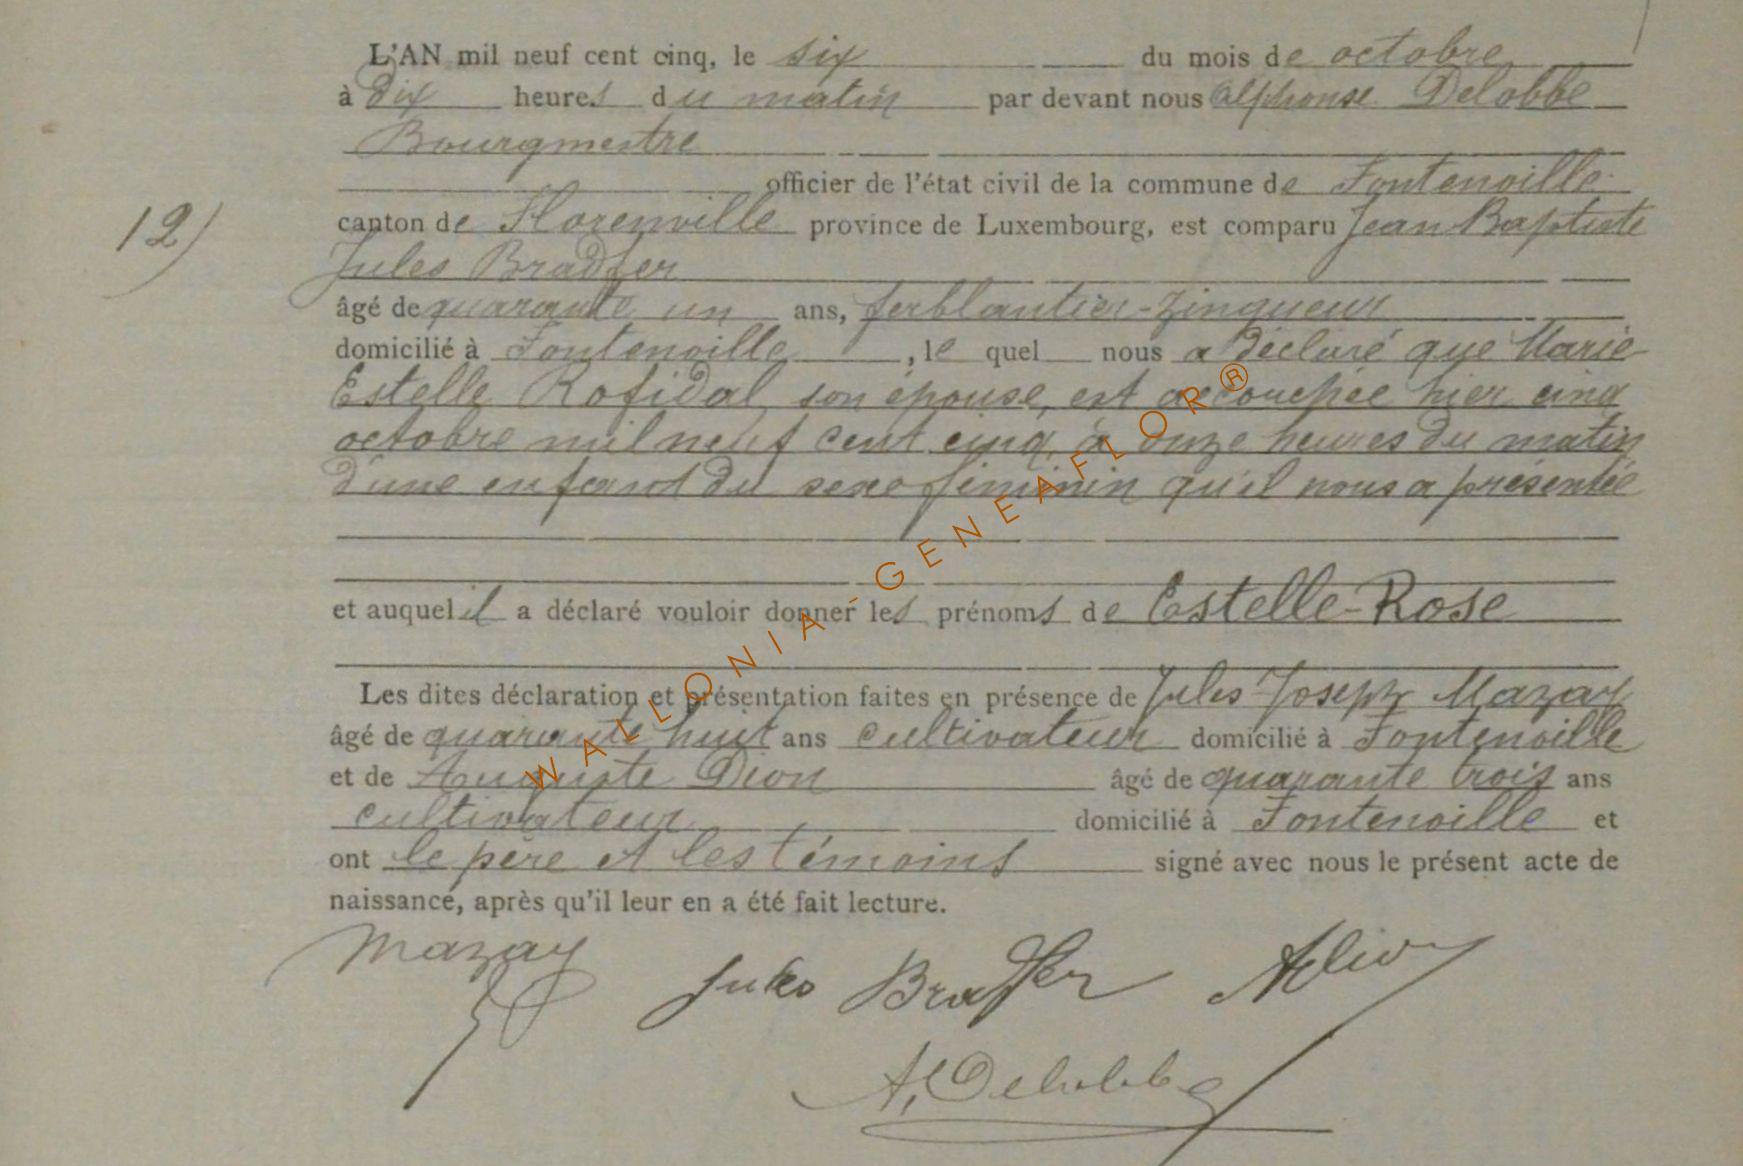 L'AN mil neuf cent cinq, le six du mois de octobre
à dix heures du matin par devant nous Alphonse Delobbe
Bourgmestre
officier de l'état civil de la commune de Fontenoille
12)
canton de Florenville province de Luxembourg, est comparu Jean Baptiste
Jules Bradfer
âgé de quarante un ans, ferblantier-zingueur
domicilié à Fontenoille, le quel nous a déclaré que Marie
Estelle Rofidal son épouse, est accouchée hier cinq
octobre mil neuf cent cinq, à onze heures du matin
d'une enfant du sexe féminin qu'il nous a présentée
et auquel il a déclaré vouloir donner les prénoms de Estelle-Rose
Les dites déclaration et présentation faites en présence de Jules-Joseph Mazay
âgé de quarante huit ans cultivateur domicilié à Fontenoille
et de Auguste Dion âgé de quarante trois ans
cultivateur domicilié à Fontenoille et
ont le père et les témoins signé avec nous le présent acte de
naissance, après qu'il leur en a été fait lecture.
Mazay Jules Bradfer ADion
A. Delobbe
WALLONIA-GENEAFLOR®